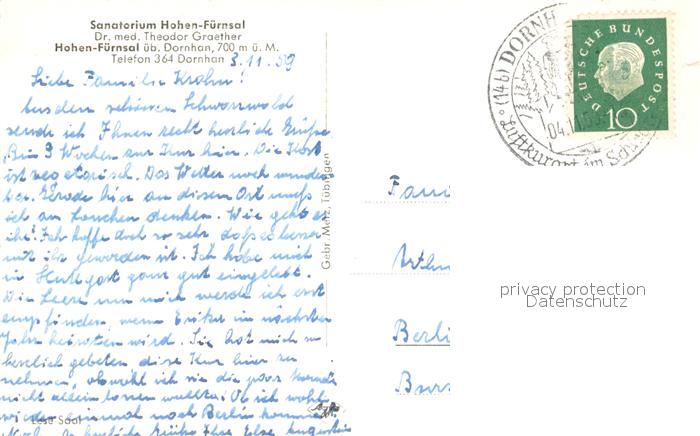 Sanatorium Hohen-Fürnsal
Dr. med. Theodor Graether
Hohen-Fürnsal üb. Dornhan, 700 m ü. M.
Telefon 364 Dornhan
3.11.59
Liebe Familie Krahn!
Aus dem schönen Schwarzwald
sende ich Ihnen recht herzliche Grüße
Bin 3 Wochen zur Kur hier. Die Kost
ist vegetarisch. Das Wetter noch wunder
bar. Gerade hier an diesem Ort muß
ich an denken. Wie geht es
ihr? Ich hoffe doch so sehr daß es besser
mit ihr geworden ist. Ich habe mich
in ganz gut eingelebt.
Die Leere um mich werde ich erst
empfinden, wenn im nächsten
Jahr heiraten wird. Sie hat mich so
herzlich gebeten diese Kur hier zu
nehmen, obwohl ich sie die paar
nicht allein lassen wollte. Ob ich wohl
wieder einmal nach Berlin komme
herzliche Grüße Ihre Else
Lese Saal
Gebr. Metz, Tübingen
(14b) DORNH
04.11
Luftkurort im Schw
DEUTSCHE BUNDESPOST
10
Fami
Arthu
Berli
privacy protection
Datenschutz